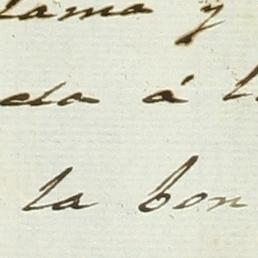 lama y
da á l
la bon